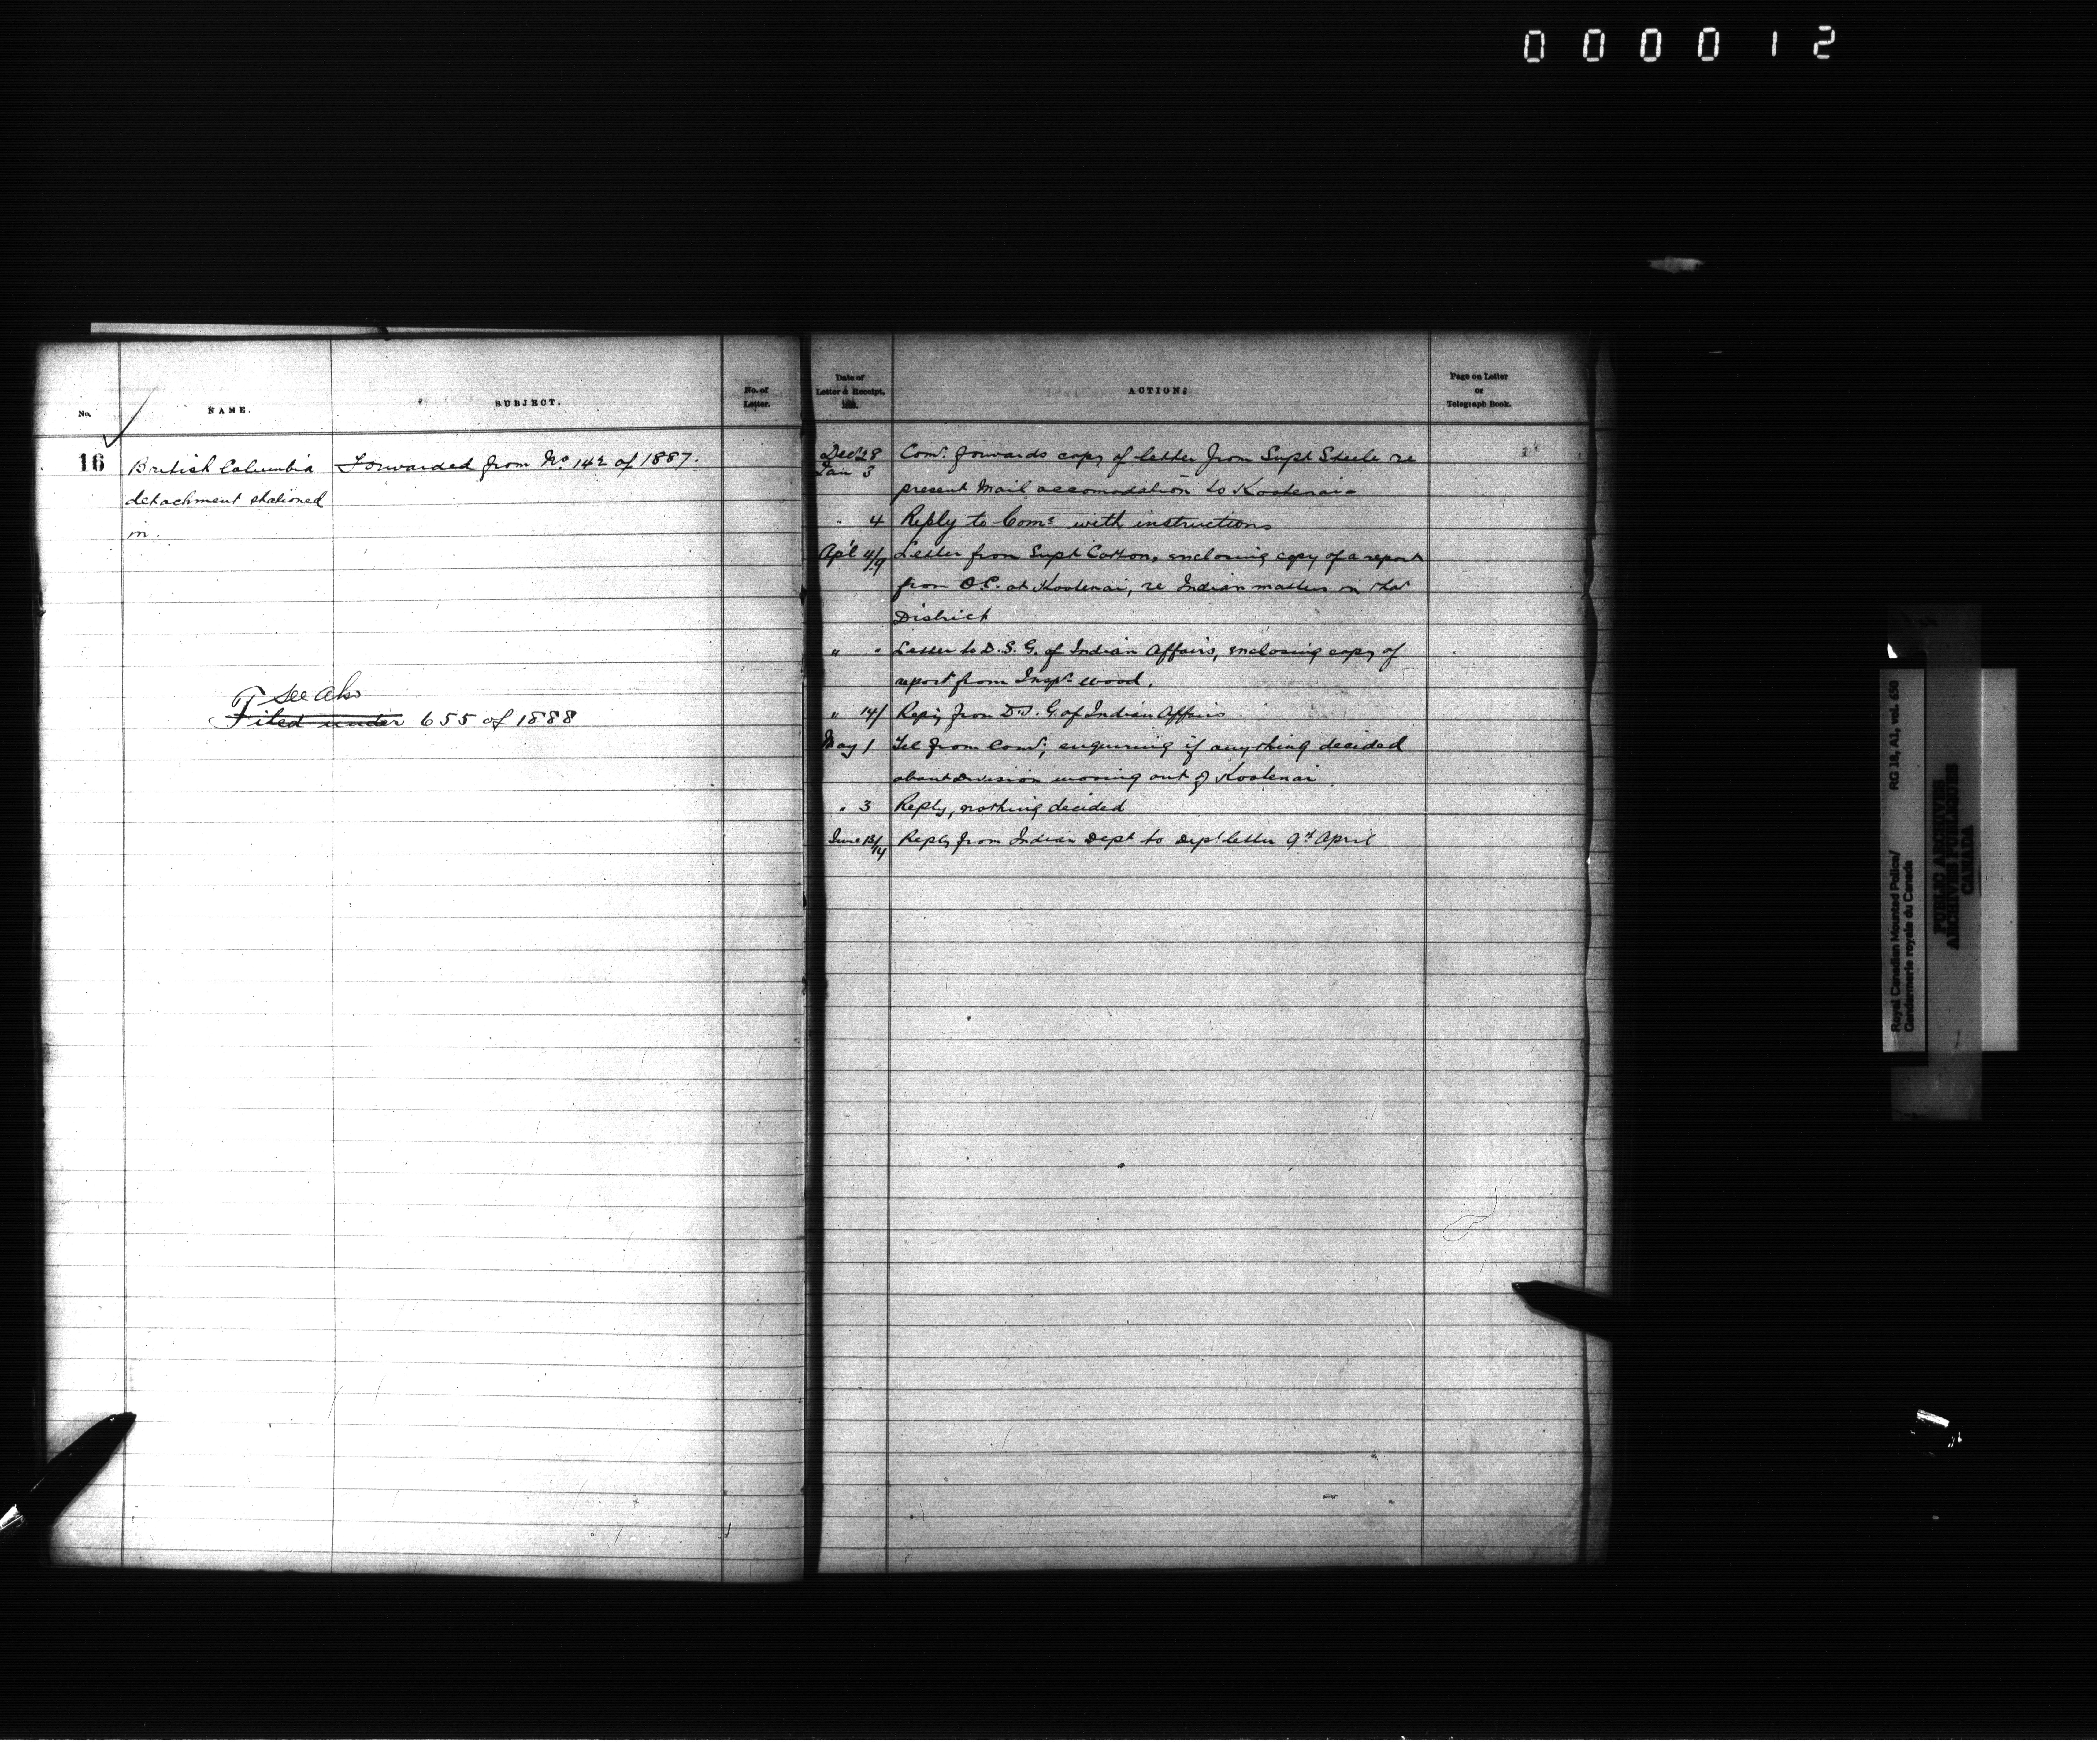 000012
No.
NAME.
SUBJECT.
No. of
Letter.
Date of
Letter & Receipt,
188.
ACTION.
Page on Letter
or
Telegraph Book.
16
British Columbia
detachment stationed
in.
Forwarded from No. 142 of 1887.
See also
Filed under 655 of 1888
Dec 28
Jan 3
Comr. forwards copy of letter from Supt Steele re
present Mail accomodation to Kootenai
" 4 Reply to Comr with instructions
Apl 4/9 Letter from Supt Cotton, enclosing copy of a report
from O.C. at Kootenai, re Indian matters in that
District
" " Letter to D.S.G. of Indian Affairs, enclosing copy of
report from Inspr. Wood.
" 14/ Reply from D.S.G. of Indian Affairs
May 1 Tel from Comr, enquiring if anything decided
about Division moving out of Kootenai.
" 3 Reply, nothing decided
June 13/14 Reply from Indian Dept to Dept letter 9th April
Royal Canadian Mounted Police/
Gendarmerie royale du Canada
RG 18, A1, vol. 650
PUBLIC ARCHIVES
ARCHIVES PUBLIQUES
CANADA